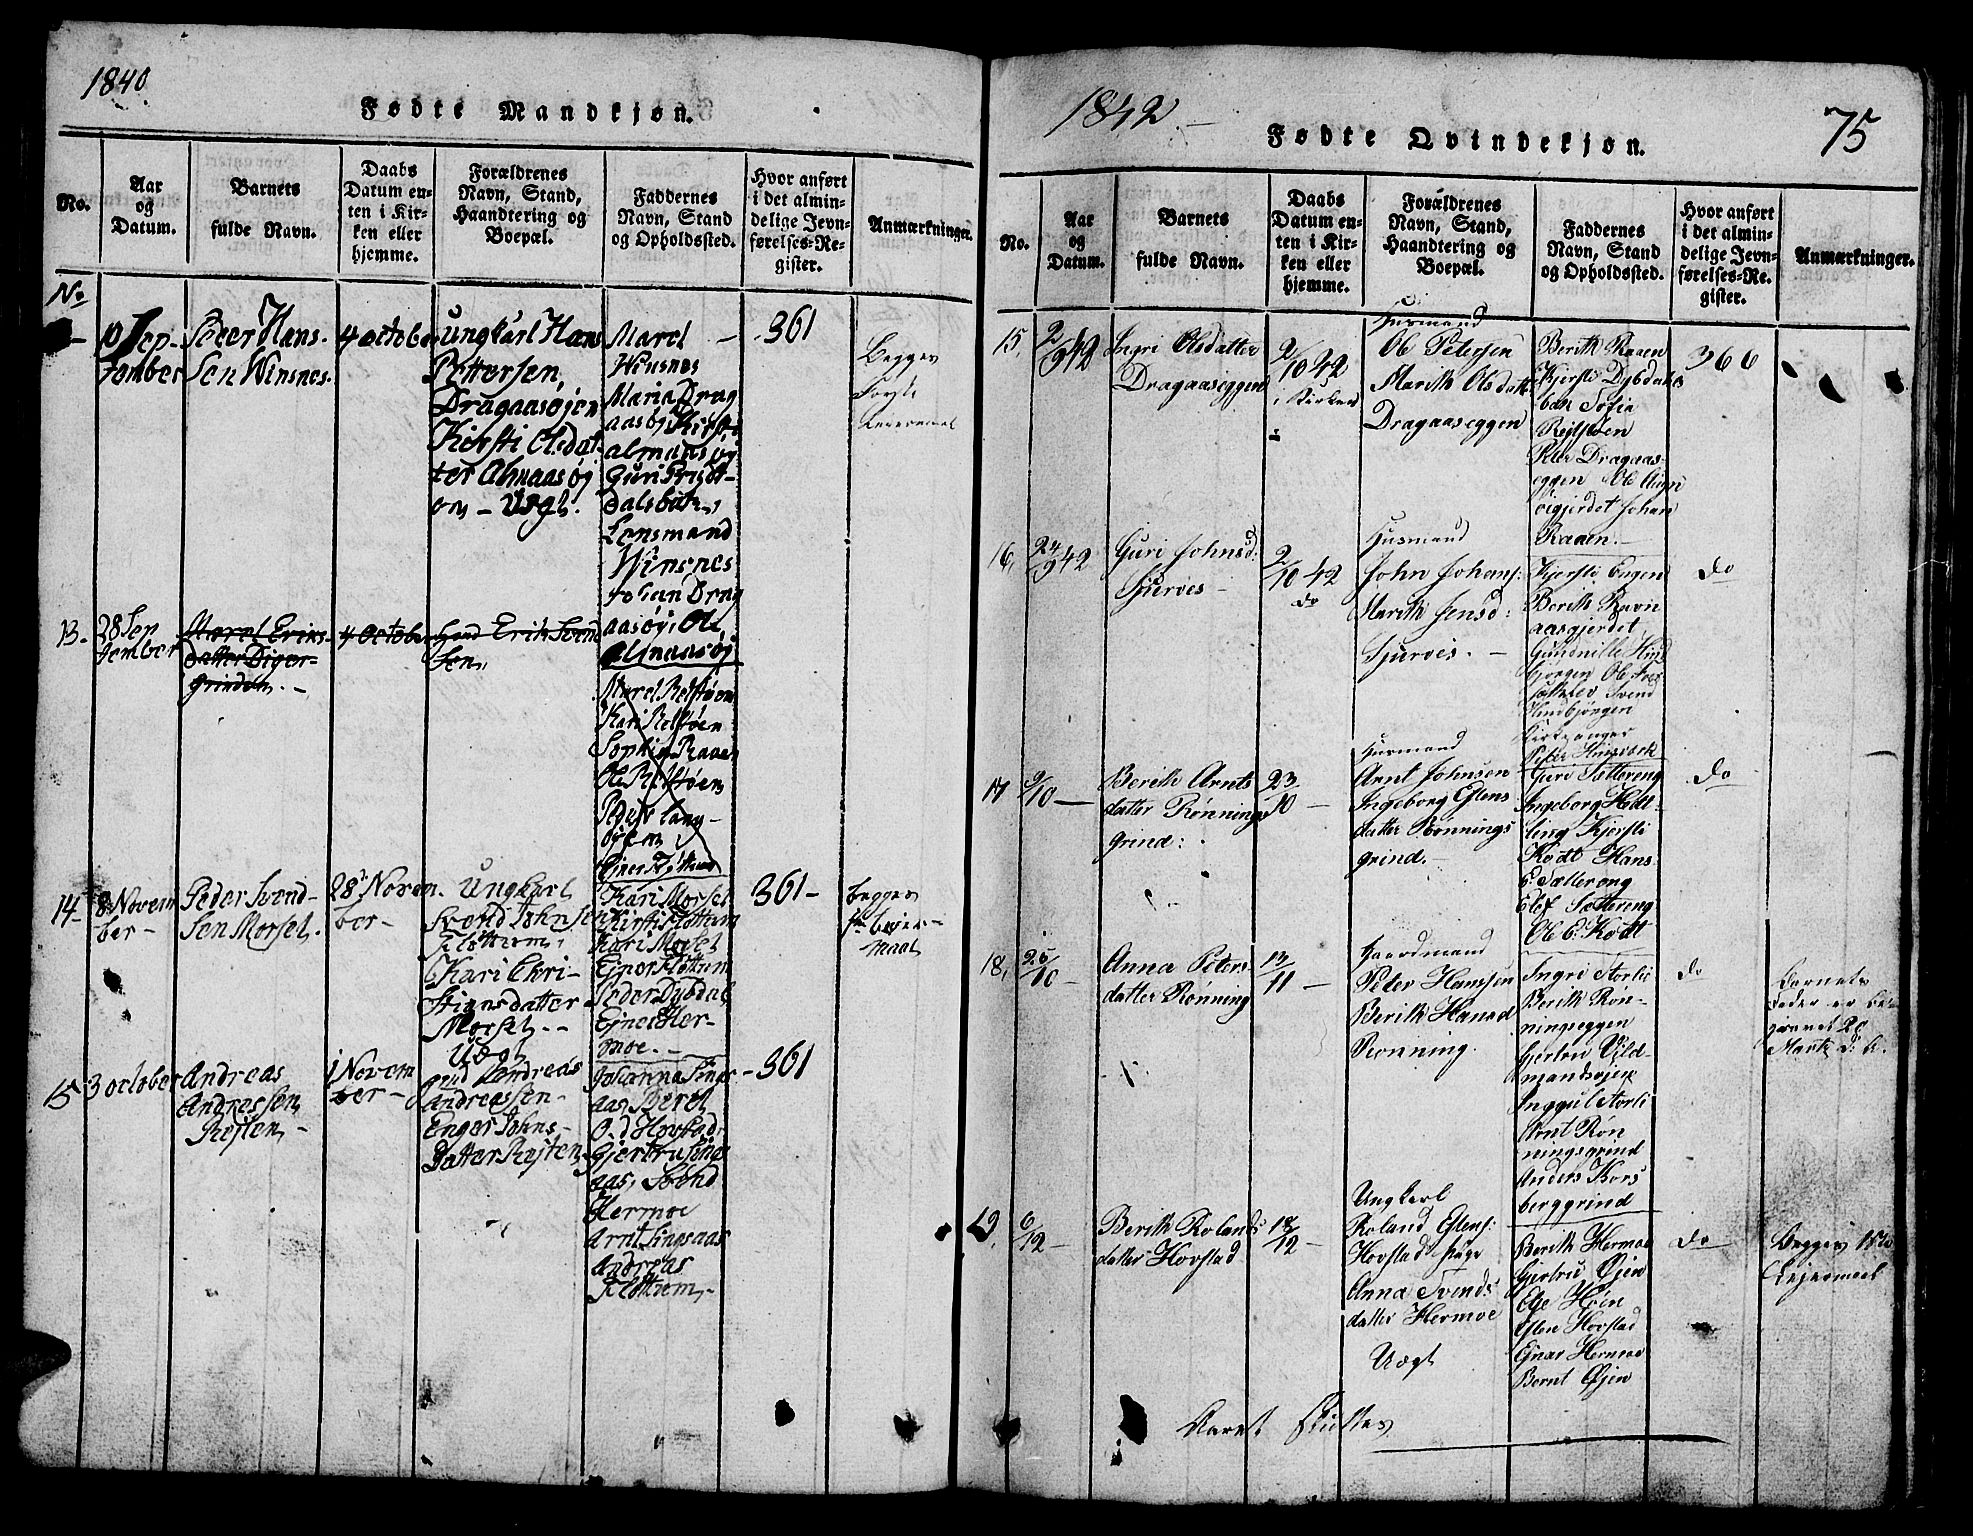 1840
Fødte Mandkjøn.
No.
Aar
og
Datum.
Barnets
fulde Navn.
Daabs
Datum en-
ten i Kir-
ken eller
hjemme.
Forældrenes
Navn, Stand,
Haandtering og
Boepæl.
Faddernes
Navn, Stand
og Opholdssted.
Hvor anført
i det almin-
delige Jevn-
førelses-Re-
gister.
Anmærkninger.
No
10 Sep-
tember
Peder Hans-
sen Winsnes.
4 october
Ungkarl Hans
Pettersen,
Dragaasøjen
Kiersti Olsdat-
ter Almaasøj
en - Uægt.
Marel
Winsnes
Maria Drag
aasøj, Kirsti
almaasøj
Guri
dalsbak,
Lensmand
Winsnes
Johan Drag
aasøj, Ole
almaasøj
361
Begges
Første
Leiermaal
13.
28 Sep
tember
Marel Eriks-
datter Diger-
grinden. -
4 October
Erik Svend
sen,
Marel Relstøen
Kari Relstøen
Sophia Raaen
Ole Relstøen
Peder lang-
øien
Ejner Fløttum
14-
8 Novem
ber -
Peder Svend-
sen Morset.
28 Novem.
ber -
Ungkarl
Svend Johnsen
Fløttum,
Kari Chri-
stiansdatter
Morset --
Uægt
Kari Morset
Kirsti Fløttum
Kari Morset
Ejner Fløttum
Peder Dybdal
Ejner Her-
moe. -
361 -
begges
1ste Leier-
maal
15
3 october
Andreas
Andressen
Røsten, -
1 Novem
ber -
Andreas
Andreassen -
Enger Johns-
Datter Røsten
Johanna Sings-
aas, Berel
O.d Hovstad
Gjertru Sings
aas, Svend
Hermoe
Arnt Singsaas
Andreas
Fløttum, -
361
1842 -
Fødte Qvindekjøn.
75
No.
Aar
og
Datum.
Barnets
fulde Navn.
Daabs
Datum en-
ten i Kir-
ken eller
hjemme.
Forældrenes
Navn, Stand,
Haandtering og
Boepæl.
Faddernes
Navn, Stand
og Opholdssted.
Hvor anført
i det almin-
delige Jevn-
førelses-Re-
gister.
Anmærkninger.
15,
2/9 42
Ingri Olsdatter
Dragaaseggen
2/10 42
i Kirken
Husmand
Ole Petersen
Marith Olsdatt
Dragaaseggen
Berith Raaen
Kjersti Dybdals
bak Sofia
Rejtstøen
Peter Dragaas-
eggen Ole Aun
vigjerdet Johan
Raaen. -
366
16,
24/9 42
Guri Johnsd:
Tjurvis -
2/10 42
do
Husmand
John Johans:
Marith Jensd:
Tjurvis. -
Kjersti Engen
Berith Ravn
aasgjerdet
Gundnille Hind
bjørgen Ole
Svend
Hindbjørgen
Kirkesanger
Peter
do
17
9/10 -
Berith Arnts
datter Rønnings
grind:
23/10 -
Husmand
Arnt Johnsen
Ingeborg Estens
datter Rønnings
grind. -
Guri Sættereng
Ingeborg Hodt-
ling Kjersti
Kodt Hans
E. Sættereng
Elef Sættereng
Ole E. Kodt
do
18,
25/10 -
Anna Peters-
datter Rønning
13/11 -
Gaardmand
Peder Hanssen
Berith Hansd
Rønning.
Ingri Storli
Berith Røn-
ningseggen
Gjertru Vild-
mandsøjen
Inggul Storli
Arnt Røn
ningsgrind
Anders Kors
berggrind
do
Barnets
Fader er be
gravet 20
Marts d: A.
19,
6/12 -
Berith Rolands
datter Hovstad
18/12 -
Ungkarl
Roland Estens:
Hovstad Pige
Anna Svends
datter Hermoe
Uægt
Berith Hermoe
Gjertru Øjen
Ege Høen
Esten Hovstad
Ejnar Hermoe
Bernt Øjen
do
Begges 1ste
Lejermaal
Aaret sluttes